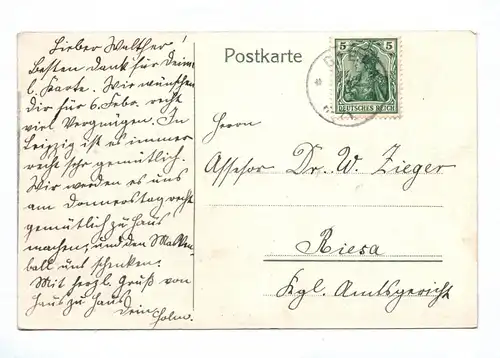 Lieber Walther!
Besten Dank für Deine
l. Karte. Wir wünschen
Dir für 6. Febr. recht
viel Vergnügen. In
Leipzig ist es immer
recht sehr gemütlich.
Wir werden es uns
am Donnerstag recht
gemütlich zu Haus
machen, und den Masken-
ball uns schenken.
Mit herzl. Gruß von
Haus zu Haus
Dein
Postkarte
5 5
DEUTSCHES REICH
Herrn
Assessor Dr. W. Zieger
Riesa
Kgl. Amtsgericht